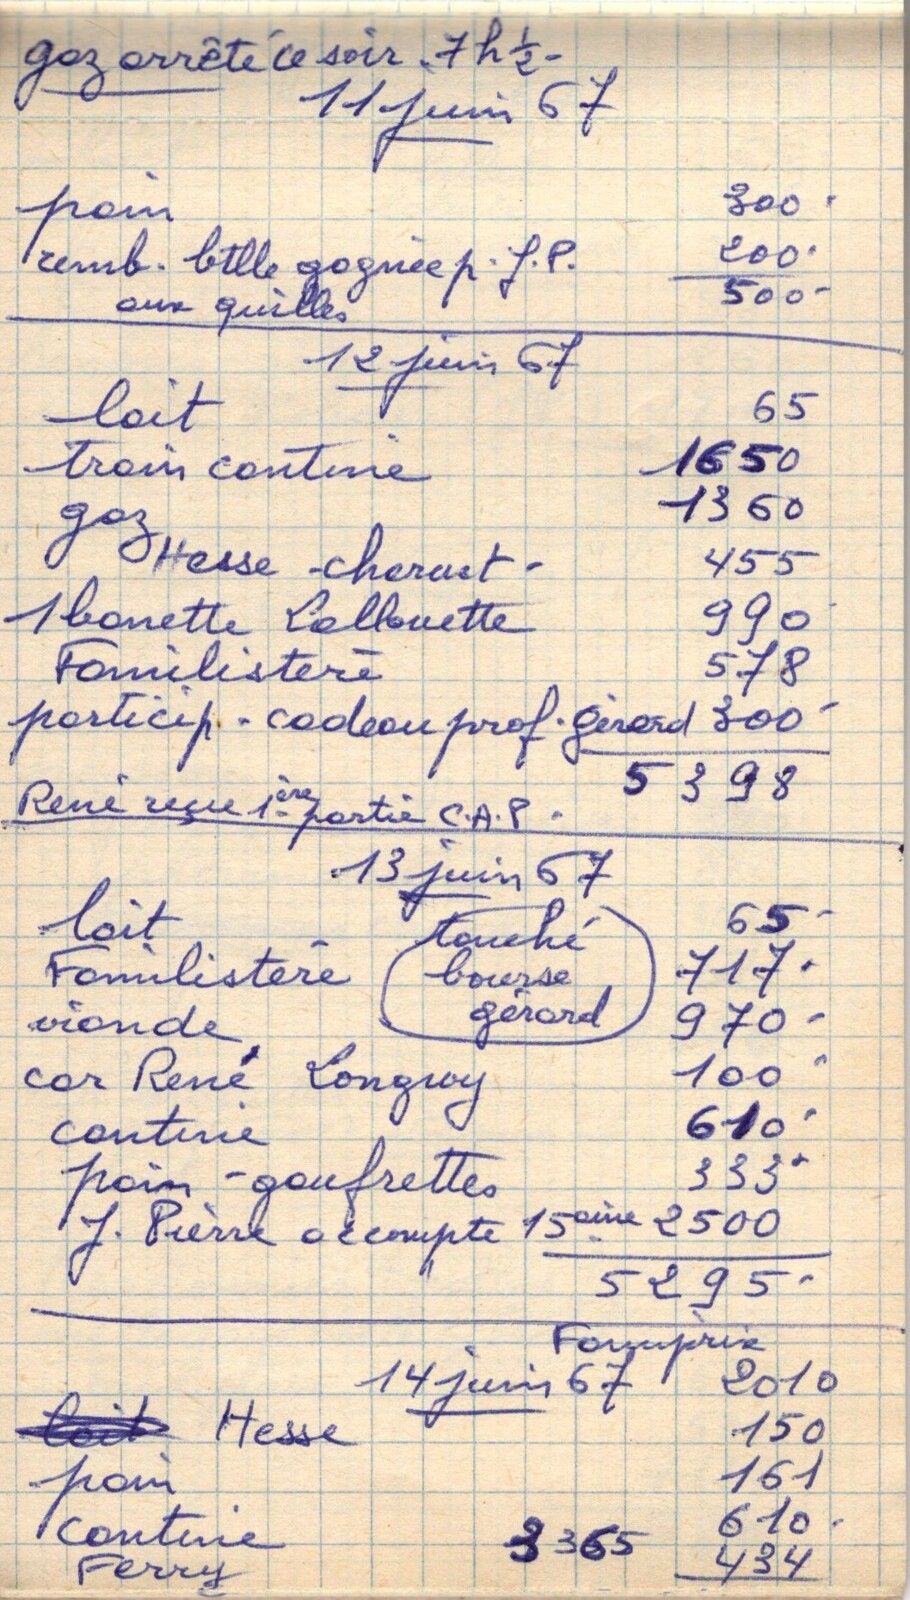 gaz arrêté ce soir 7 h ½ -
11 juin 67
pain 300 -
remb. btlle gagnée p. J. P. 200 -
aux quilles 500 -
12 juin 67
lait 65
train cantine 1650
gaz 1360
Hesse - - 455
1 Lallouette 990
Familistère 578
particip. cadeau prof. gérard 300 -
5398
René reçu 1ère partie C.A.P.
13 juin 67
lait 65 -
touché
Familistère 717 -
bourse
viande 970 -
gérard
car René Longwy 100 -
cantine 610 -
pain - gaufrettes 333 -
J. Pierre accompte 15aine 2500
5295 -
Famiprix
14 juin 67 2010
lait Hesse 150
pain 161
cantine 610 -
Ferry 3365 434